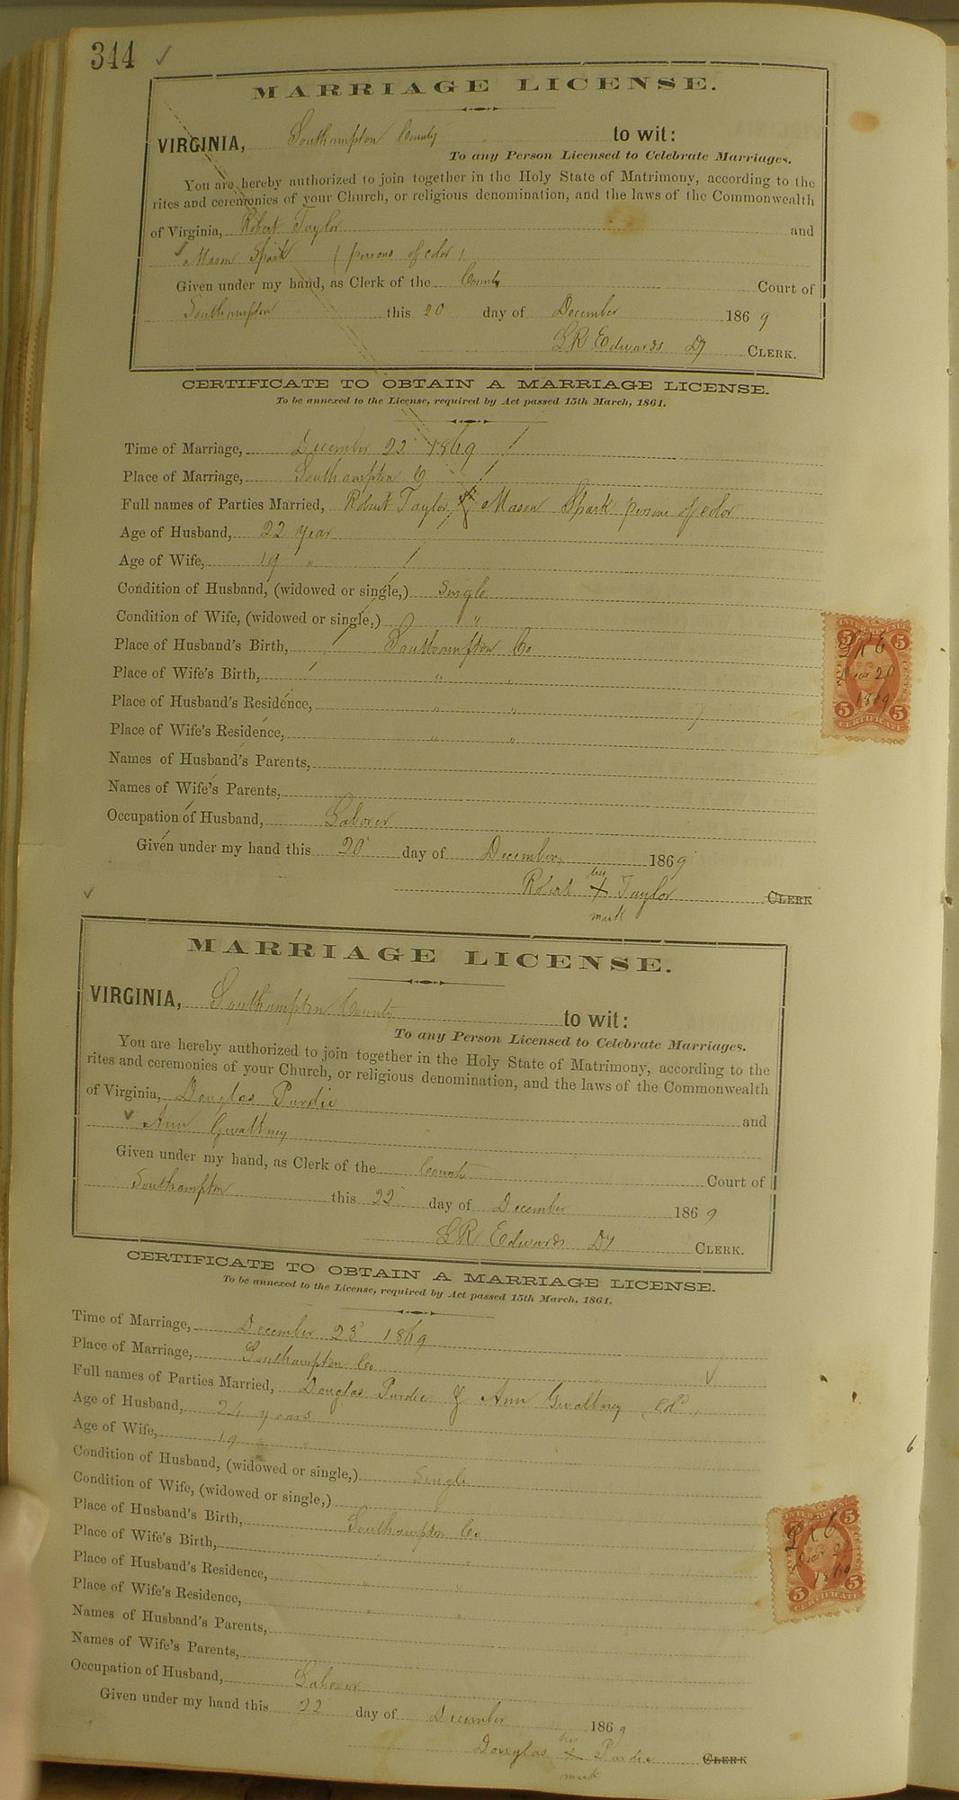 344 ✓
MARRIAGE LICENSE.
VIRGINIA, Southampton County to wit:
To any Person Licensed to Celebrate Marriages.
You are hereby authorized to join together in the Holy State of Matrimony, according to the
rites and ceremonies of your Church, or religious denomination, and the laws of the Commonwealth
of Virginia, Robert Taylor and
✓ Mason Spark (persons of color)
Given under my hand, as Clerk of the County Court of
Southampton this 20 day of December 1869
LR Edwards Dy CLERK.
CERTIFICATE TO OBTAIN A MARRIAGE LICENSE.
To be annexed to the License, required by Act passed 15th March, 1861.
Time of Marriage, December 23 1869
Place of Marriage, Southampton Co
Full names of Parties Married, Robert Taylor & Mason Spark persons of color
Age of Husband, 22 year
Age of Wife, 19 "
Condition of Husband, (widowed or single,) Single
Condition of Wife, (widowed or single,) "
Place of Husband's Birth, Southampton Co
Place of Wife's Birth, " "
Place of Husband's Residence, " "
Place of Wife's Residence, " "
Names of Husband's Parents,
Names of Wife's Parents,
Occupation of Husband, Laborer
Given under my hand this 20 day of December 1869
his
Robert X Taylor CLERK
mark
INTER. REVENUE
5 5
LRE
Dec 20
1869
5 5
CERTIFICATE
✓
MARRIAGE LICENSE.
VIRGINIA, Southampton County to wit:
To any Person Licensed to Celebrate Marriages.
You are hereby authorized to join together in the Holy State of Matrimony, according to the
rites and ceremonies of your Church, or religious denomination, and the laws of the Commonwealth
of Virginia, Douglas Purdie and
✓ Ann Gwaltney
Given under my hand, as Clerk of the County Court of
Southampton this 22 day of December 1869
LR Edwards Dy CLERK.
CERTIFICATE TO OBTAIN A MARRIAGE LICENSE.
To be annexed to the License, required by Act passed 15th March, 1861.
Time of Marriage, December 23 1869
Place of Marriage, Southampton Co
Full names of Parties Married, Douglas Purdie & Ann Gwaltney cold
Age of Husband, 24 years
Age of Wife, 19 "
Condition of Husband, (widowed or single,) Single
Condition of Wife, (widowed or single,) "
Place of Husband's Birth, Southampton Co
Place of Wife's Birth, "
Place of Husband's Residence, " "
Place of Wife's Residence, " "
Names of Husband's Parents,
Names of Wife's Parents,
Occupation of Husband, Laborer
Given under my hand this 22 day of December 1869
his
Douglas X Purdie CLERK
mark
INTER. REVENUE
5 5
LRE
1869
5 5
CERTIFICATE